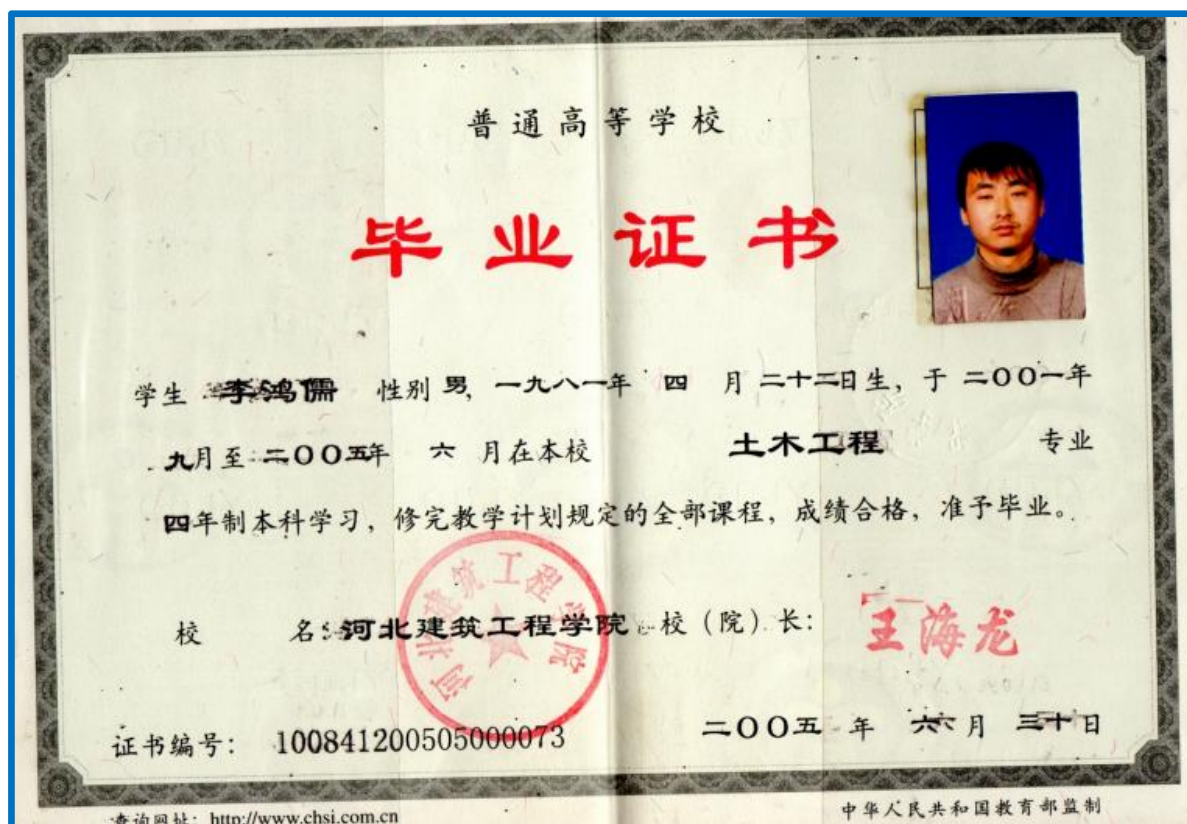 普通高等学校
毕业证书
学生 李鸿儒 性别 男, 一九八一年 四 月 二十二日生, 于 二〇〇一年
九月至 二〇〇五年 六 月在本校 土木工程 专业
四年制本科学习, 修完教学计划规定的全部课程, 成绩合格, 准予毕业。
河北建筑工程学院
校 名: 河北建筑工程学院 校 (院) 长: 王海龙
二〇〇五 年 六 月 三十日
证书编号: 100841200505000073
查询网址: http://www.chsi.com.cn
中华人民共和国教育部监制